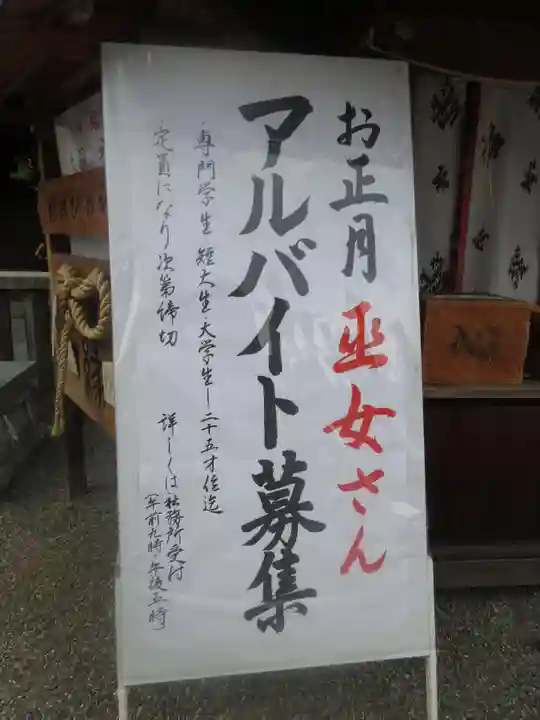 お正月巫女さん
アルバイト募集
専門学生 短大生・大学生～二十五才位迄
定員になり次第締切
詳しくは社務所受付
(午前九時・午後五時)